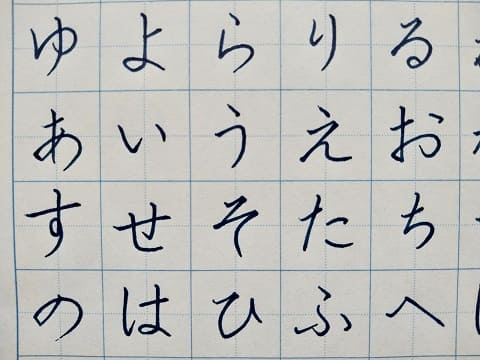 ゆよらりる
あいうえお
すせそたち
のはひふへ